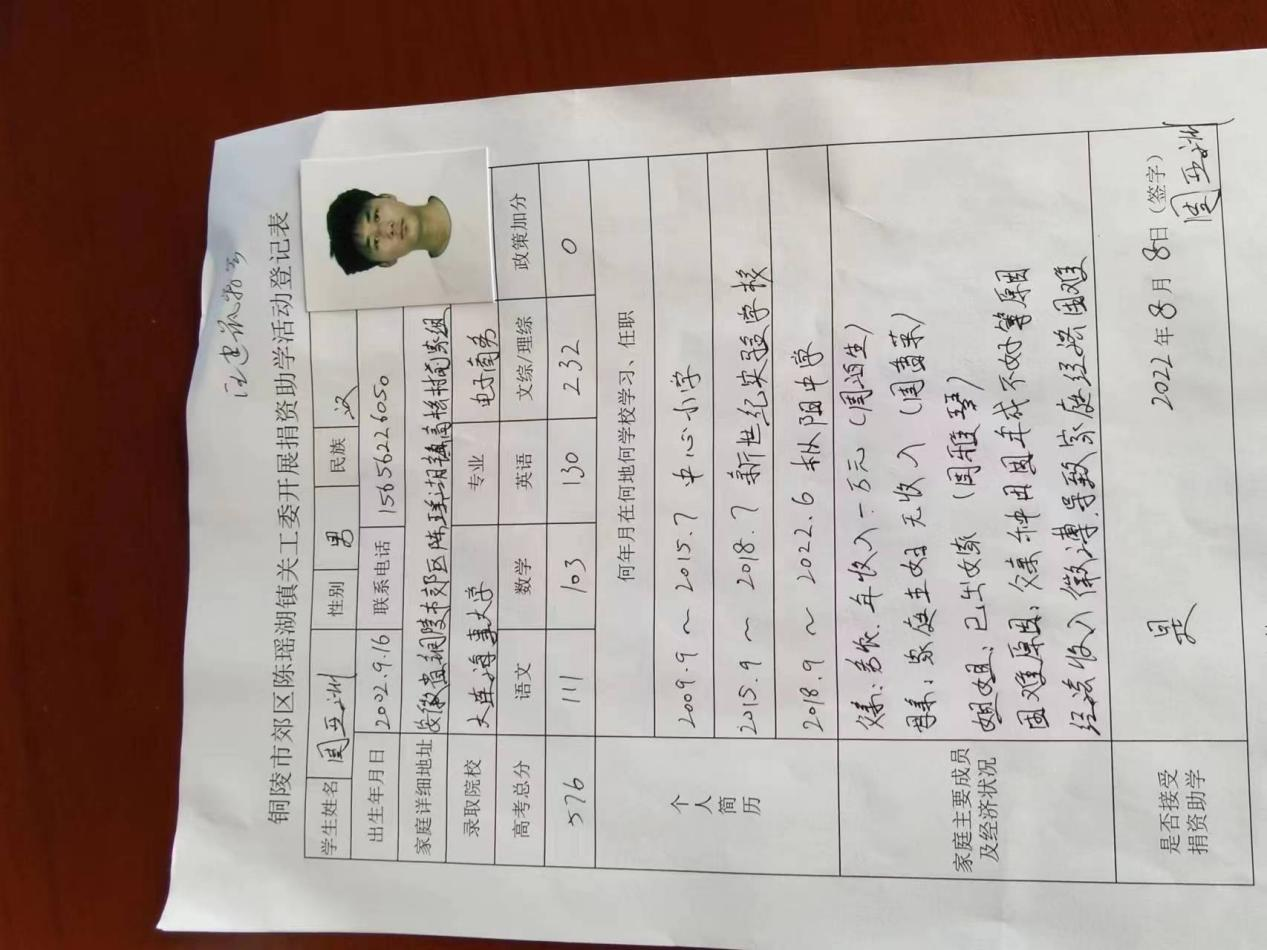 铜陵市郊区陈瑶湖镇关工委开展捐资助学活动登记表
学生姓名 周亚洲 性别 男 民族 汉
出生年月日 2002.9.16 联系电话 15656226050
家庭详细地址 安徽省铜陵市郊区陈瑶湖镇高桥村
录取院校 大连海事大学 专业 电子商务
高考总分 语文 数学 英语 文综/理综 政策加分
576 111 103 130 232 0
个人简历
何年月在何地何学校学习、任职
2009.9～2015.7 中心小学
2015.9～2018.7 新世纪实验学校
2018.9～2022.6 枞阳中学
家庭主要成员及经济状况
父亲：务农.年收入一万元（周泊生）
母亲：家庭主妇 无收入（周雪菜）
姐姐：已出嫁（周雅琴）
困难原因：父亲种田年成不好等原因
经济收入微薄.导致家庭经济困难
是否接受捐资助学
是
2022年8月8日（签字）
周亚洲